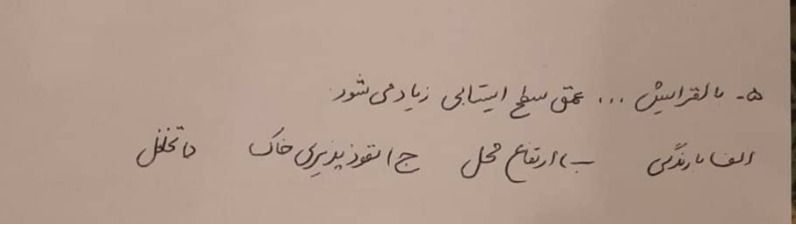 ۵- با افزایش ... عمق سطح ایستابی زیاد می شود.
الف) بارندگی ب) ارتفاع محل ج) نفوذپذیری خاک د) تخلخل